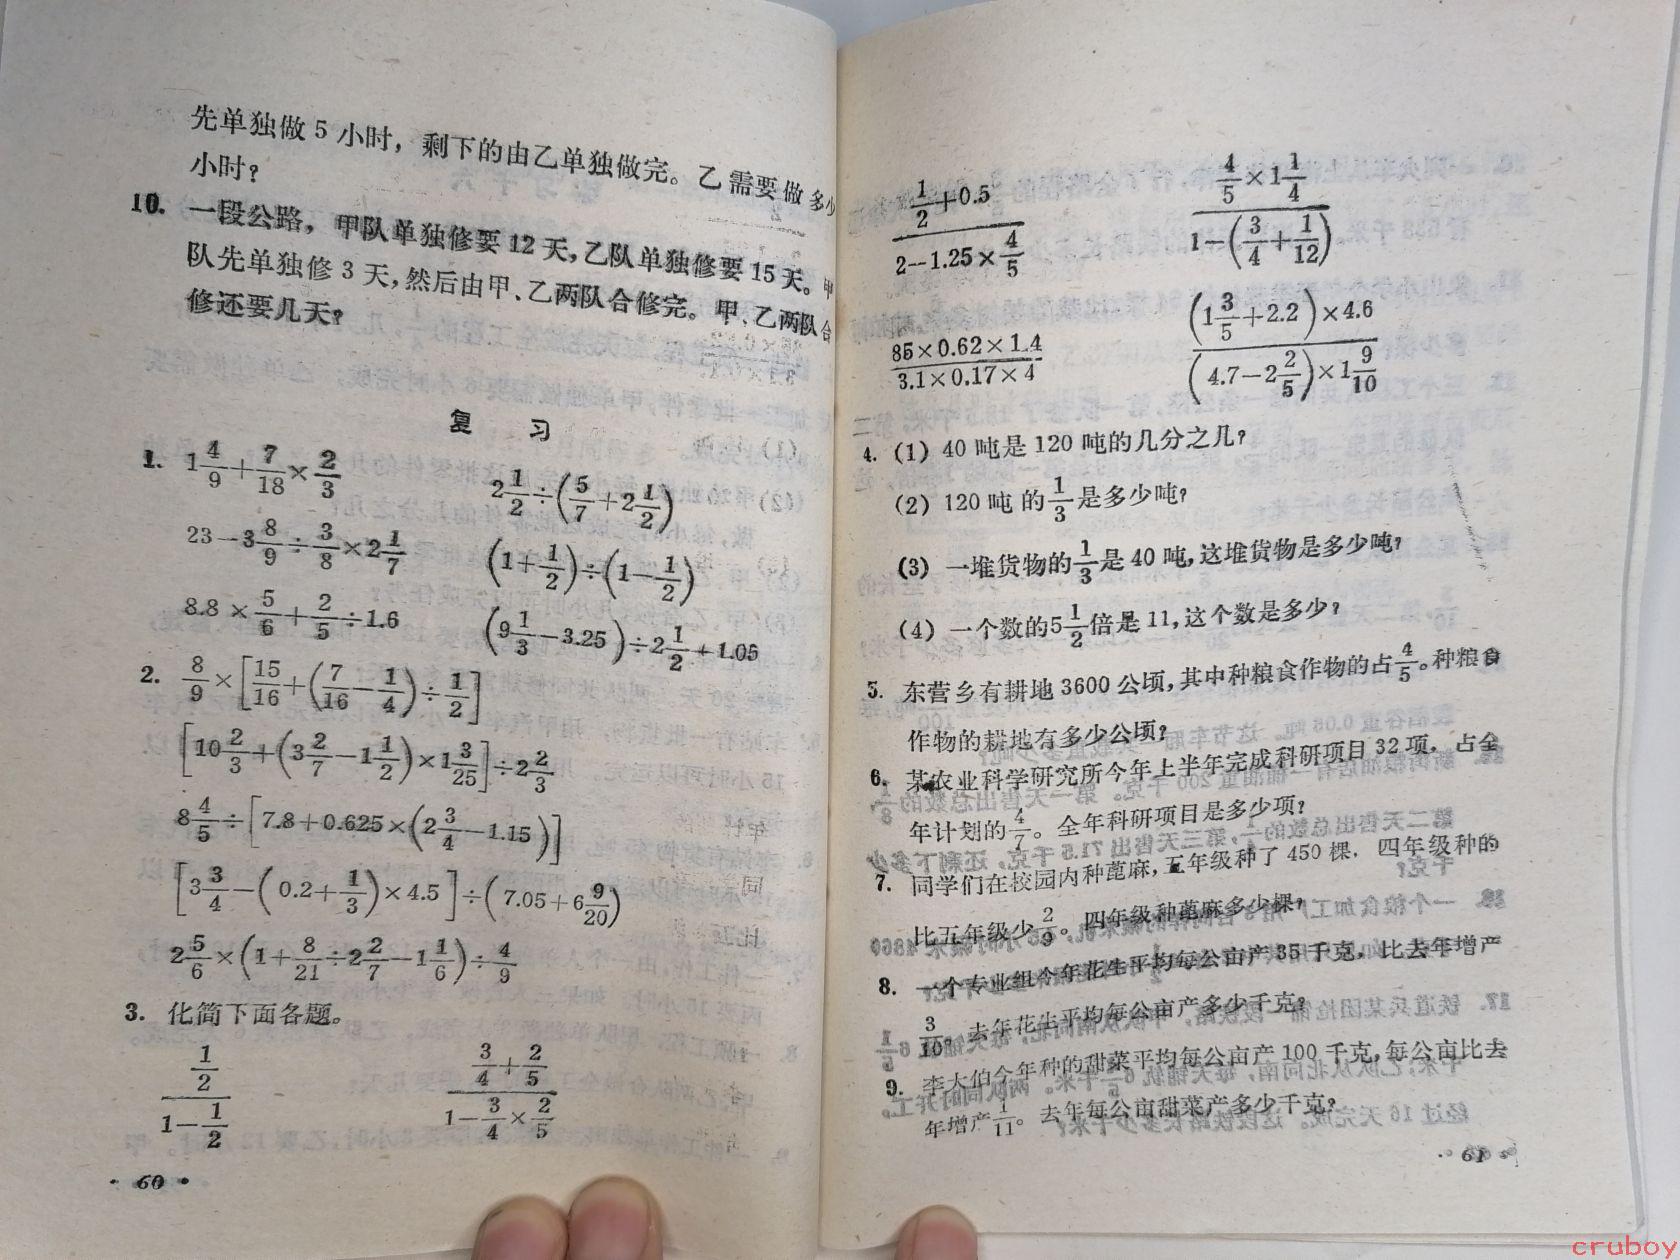 先单独做 5 小时，剩下的由乙单独做完。乙需要做多少
小时？
10. 一段公路，甲队单独修要 12 天，乙队单独修要 15 天。甲
队先单独修 3 天，然后由甲、乙两队合修完。甲、乙两队合
修还要几天？
复 习
1. 1 4/9 + 7/18 × 2/3    2 1/2 ÷ (5/7 + 2 1/2)
23 − 3 8/9 ÷ 3/8 × 2 1/7    (1 + 1/2) ÷ (1 − 1/2)
8.8 × 5/6 + 2/5 ÷ 1.6    (9 1/3 − 3.25) ÷ 2 1/2 + 1.05
2. 8/9 × [15/16 + (7/16 − 1/4) ÷ 1/2]
[10 2/3 + (3 2/7 − 1 1/2) × 1 3/25] ÷ 2 2/3
8 4/5 ÷ [7.8 + 0.625 × (2 3/4 − 1.15)]
[3 3/4 − (0.2 + 1/3) × 4.5] ÷ (7.05 + 6 9/20)
2 5/6 × (1 + 8/21 ÷ 2 2/7 − 1 1/6) ÷ 4/9
3. 化简下面各题。
(1/2) / (1 − 1/2)    (3/4 + 2/5) / (1 − 3/4 × 2/5)
· 60 ·
(1/2 + 0.5) / (2 − 1.25 × 4/5)    (4/5 × 1 1/4) / (1 − (3/4 + 1/12))
(85 × 0.62 × 1.4) / (3.1 × 0.17 × 4)    ((1 3/5 + 2.2) × 4.6) / ((4.7 − 2 2/5) × 1 9/10)
4. (1) 40 吨是 120 吨的几分之几？
(2) 120 吨的 1/3 是多少吨？
(3) 一堆货物的 1/3 是 40 吨，这堆货物是多少吨？
(4) 一个数的 5 1/2 倍是 11，这个数是多少？
5. 东营乡有耕地 3600 公顷，其中种粮食作物的占 4/5。种粮食
作物的耕地有多少公顷？
6. 某农业科学研究所今年上半年完成科研项目 32 项，占全
年计划的 4/7。全年科研项目是多少项？
7. 同学们在校园内种蓖麻，五年级种了 450 棵，四年级种的
比五年级少 2/9。四年级种蓖麻多少棵？
8. 一个专业组今年花生平均每公亩产 35 千克，比去年增产
3/10。去年花生平均每公亩产多少千克？
9. 李大伯今年种的甜菜平均每公亩产 100 千克，每公亩比去
年增产 1/11。去年每公亩甜菜产多少千克？
· 61 ·
cruboy